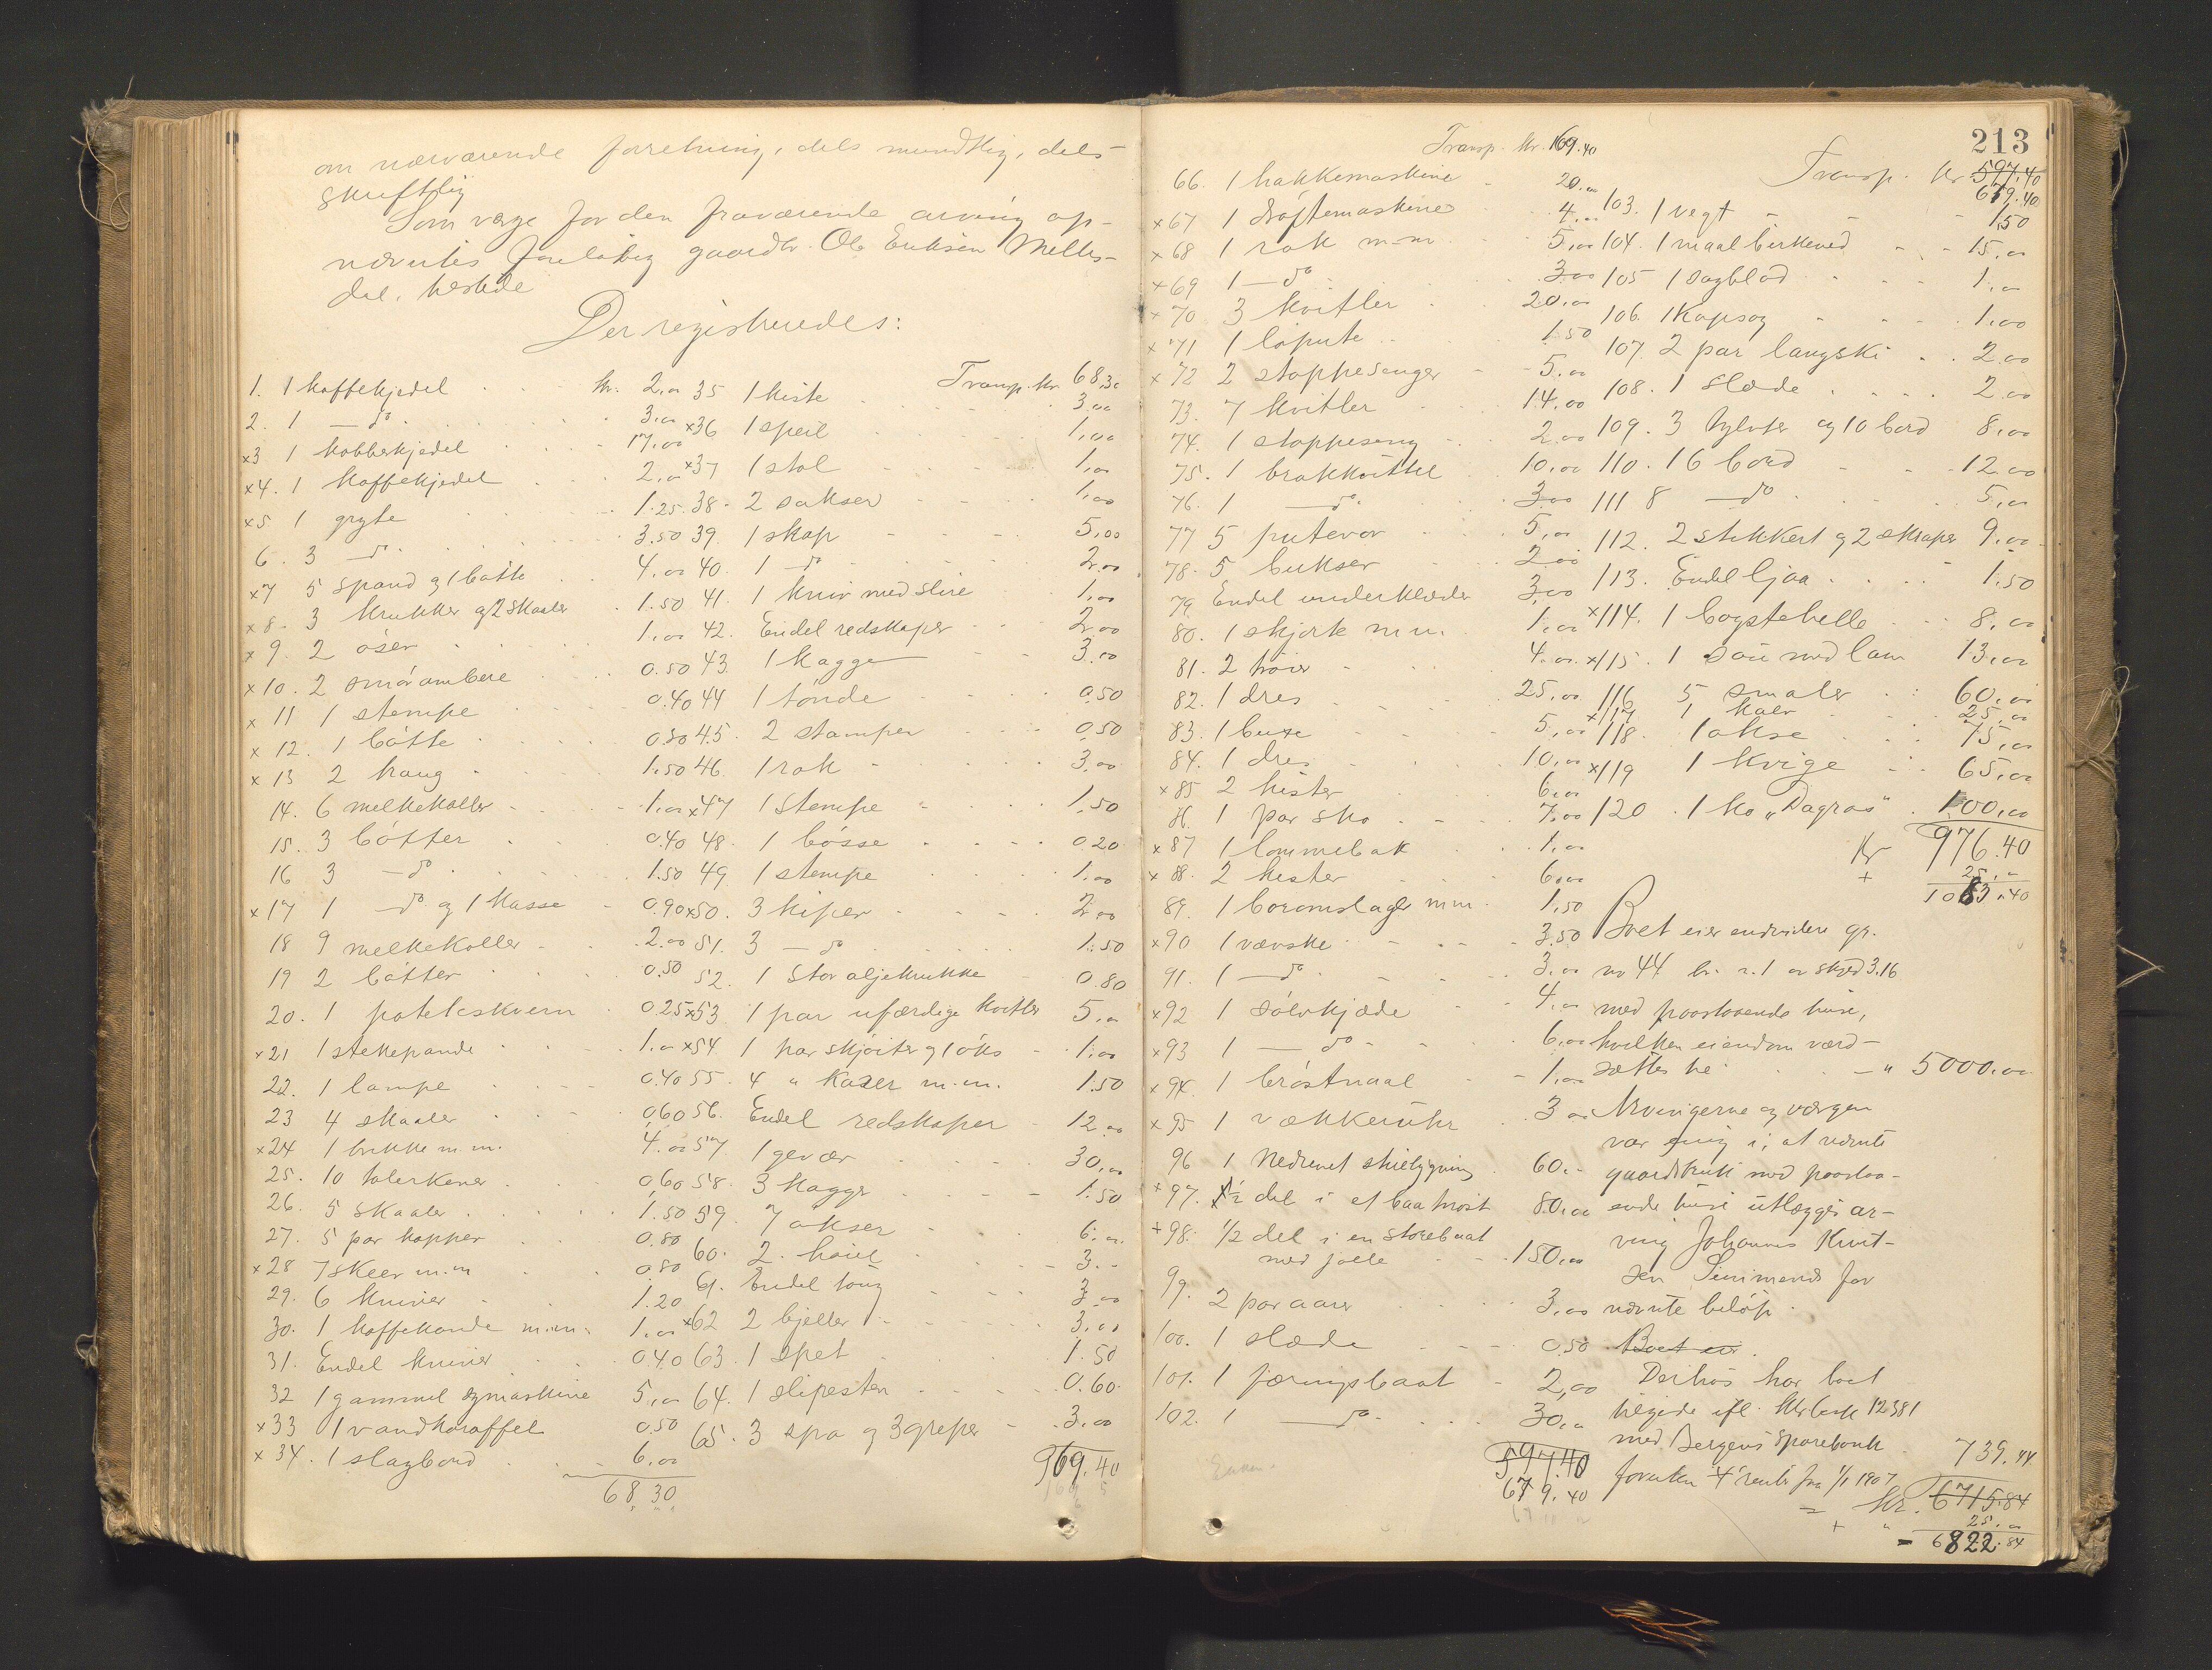 om nærværende forretning, dels mundtlig, dels
skriftlig
Som værge for den fraværende arving op-
nævntes foreløbig gaardbr. Ole Eriksen Melles-
dal, tilstede
Der registreredes:
1. 1 kaffekjedel kr. 2,00
2. 1 — do 3,00
x3 1 kobberkjedel 17,00
x4. 1 kaffekjedel 2,00
x5 1 gryte 1.25
6. 3 — do 3.50
x7 5 spand og 1 bøtte 4,00
x8. 3 krukker og 2 skaaler 1.50
x9. 2 øser 1,00
x10. 2 smørambere 0.50
x11 1 stempe 0.40
x12. 1 bøtte 0.50
x13 2 traug 1.50
14. 6 melkekoller 1,00
15. 3 bøtter 0.40
16 3 — do 1.50
x17 1 — do og 1 kasse 0.90
18 9 melkekoller 2.00
19 2 bøtter 0.50
20. 1 poteteskvern 0.25
x21 1 stekepande 1,00
22. 1 lampe 0.40
23 4 skaaler 0,60
x24 1 brikke m.m. 4,00
25. 10 tallerkener 0,60
26. 5 skaaler 1.50
27. 5 par kopper 0.80
x28 7 skeer m.m 0,80
29. 6 kniver 1.20
30. 1 kaffekande m.m. 1,00
31. Endel kniver 0.40
32 1 gammel symaskine 5,00
x33 1 vandkaraffel 0.50
x34. 1 slagbord 6,00
68,30
Transp. kr. 68.30
35 1 kiste 3,00
x36 1 speil 1,00
x37 1 stol 1,00
38. 2 sakser 1,00
39. 1 skap 5,00
40. 1 — do 2,00
41. 1 kniv med slire 1,00
42. Endel redskaper 2,00
43 1 kagge 3,00
44 1 tønde 0,50
45. 2 stamper 0,50
46. 1 rok 3,00
x47 1 stempe 1,50
48. 1 bøsse 0.20
49 1 stempe 1,00
x50. 3 kiper 2,00
51. 3 — do 1.50
52. 1 stor oljekrukke 0.80
x53 1 par ufærdige kvitler 5,00
x54 1 par skjøiter og 1 øks 1,00
55. 4 " Karer m.m. 1.50
56. Endel redskaper 12,00
57 1 gevær 30,00
58. 3 kagger 1.50
59. 7 økser 6,00
60. 2 høvel 3.-
61. Endel toug 3,00
x62 2 bjeller 3,00
63. 1 spet 1.50
64. 1 slipesten 0.60
65. 3 spa og 3 greper 3,00
169.40
213
Transp. kr. 169.40
66. 1 hakkemaskine 20.00
x67 1 drøftemaskine 4,00
x68 1 rok m.m. 5,00
x69 1 — do 3.00
x70. 3 kvitler 20.00
x71 1 løpute 1.50
x72 2 stoppesenger 5,00
73. 7 kvitler 14.00
74. 1 stoppeseng 2.00
75. 1 brokkvittel 10,00
76. 1 — do. 3.00
77 5 putevar 5,00
78. 5 bukser 2,00
79. Endel underklæder 3,00
80. 1 skjorte m.m. 1,00
81. 2 trøier 4,00
82. 1 dres 25,00
83. 1 buxe 5,00
84. 1 dres 10,00
x85 2 kister 6,00
86. 1 par sko 7,00
x87 1 lommebok 1,00
x88. 2 kister 6,00
89. 1 boromslager m.m. 1,50
x90 1 vævske 3.50
91. 1 — do 3,00
x92 1 sølvkjæde 4,00
x93 1 — do 6,00
x94. 1 brøstnaal 1,00
x95 1 vækkeuhr 3,00
96 1 60.-
x97. 1/2 del i et baatnøst 80,00
x98. 1/2 del i en storebaat
med jolle 150,00
99. 2 par aarer 3,00
100. 1 slæde 0,50
101. 1 færingsbaat 2,00
102. 1 — do 30,00
597.40
679.40
Transp. kr 597.40
679.40
103. 1 vegt 1,50
104. 1 maal birkeved 15,00
105 1 sagblad 1,00
106. 1 Kapsag 1.00
107. 2 par langski 2.00
108. 1 slæde 2.00
109. 3 tylvter og 10 bord 8,00
110. 16 bord 12.00
111 8 — do 5,00
112. 2 stikkert og 2 skraper 9,00
113. Endel ljaa 1.50
x114. 1 bogstehelle 8,00
x115. 1 sau med lam 13,00
116 5 smaler 60,00
x117 1 kalv 25,00
118. 1 okse 75,00
x119 1 kvige 65,00
120. 1 ko „Dagros" 100,00
Kr 976.40
+ 25,-
1083.40
Boet eier endvidere gr.
no 44 br. n. 1 av skyld 3.16
med paastaaende huse,
hvilken eiendom værd-
sættes til — " 5000.00
Arvingerne og værgen
var enig i, at nævnte
gaardsbruk med paastaa-
ende huse utlægges ar-
ving Johannes Knut-
sen for
nævnte beløp.
Boet eier
Derhos har boet
tilgode ifl. bok 12381
med Bergens Sparebank 739.44
foruten renter fra 1/1 1907
= Kr. 6715.84
+ " 25.00
= 6822.84